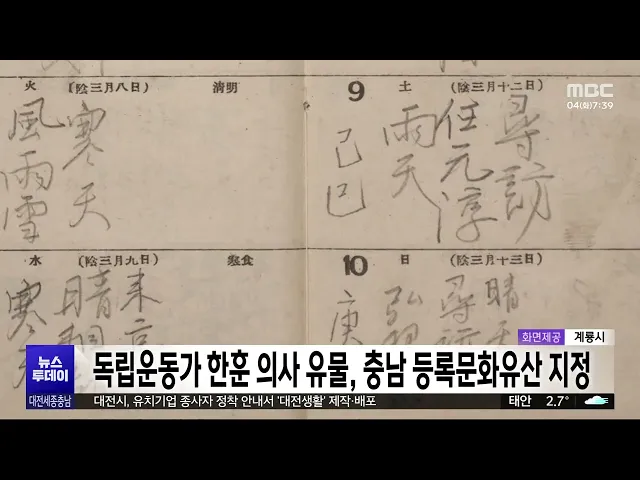 MBC
04(화)7:39
火 (陰三月八日) 清明
寒天
風雨雪
9 土 (陰三月十二日)
尋訪
任元淳
雨天
己巳
水 (陰三月九日) 寒食
10 日 (陰三月十三日)
화면제공 계룡시
뉴스투데이
독립운동가 한훈 의사 유물, 충남 등록문화유산 지정
대전세종충남
대전시, 유치기업 종사자 정착 안내서 '대전생활' 제작·배포
태안 2.7°